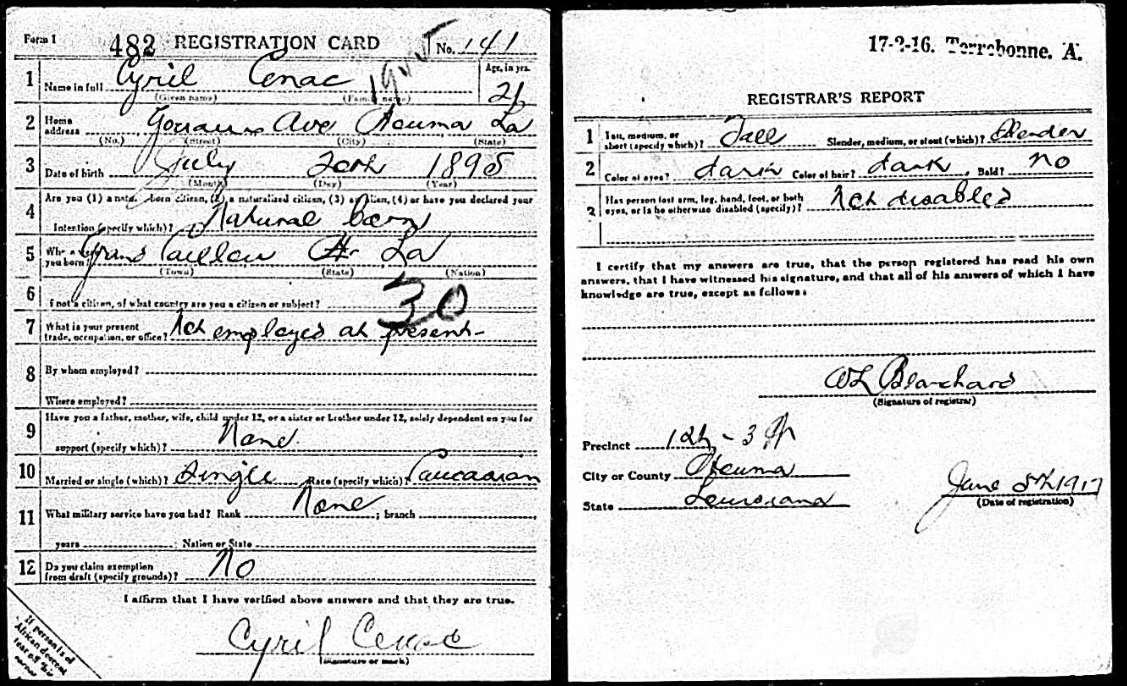 Form 1
482 REGISTRATION CARD No. 141
1 Name in full Cyril Cenac Age, in yrs. 21
(Given name) (Family name)
2 Home address Ave Houma La
(No.) (Street) (City) (State)
3 Date of birth July 20th 1895
(Month) (Day) (Year)
Are you (1) a natural born citizen, (2) a naturalized citizen, (3) an alien, (4) or have you declared your
4 intention (specify which)? Natural born
5 Where were you born? Grand Caillou La
(Town) (State) (Nation)
6 If not a citizen, of what country are you a citizen or subject? 30
7 What is your present trade, occupation, or office? Not employed at present-
8 By whom employed?
Where employed?
Have you a father, mother, wife, child under 12, or a sister or brother under 12, solely dependent on you for
9 support (specify which)? None.
10 Married or single (which)? Single Race (specify which)? Caucasian
11 What military service have you had? Rank None ; branch
years ; Nation or State
12 Do you claim exemption from draft (specify grounds)? No
I affirm that I have verified above answers and that they are true.
Cyril Cenac
(Signature or mark)
If person is of
African descent
tear off this
corner
17-2-16. Terrebonne. A.
REGISTRAR'S REPORT
1 Tall, medium, or short (specify which)? Tall Slender, medium, or stout (which)? Slender
2 Color of eyes? dark Color of hair? dark Bald? No
3 Has person lost arm, leg, hand, foot, or both eyes, or is he otherwise disabled (specify)? Not disabled
I certify that my answers are true, that the person registered has read his own
answers, that I have witnessed his signature, and that all of his answers of which I have
knowledge are true, except as follows:
WL Blanchard
(Signature of registrar)
Precinct 12th - 3
City or County Houma
State Louisiana
June 5th 1917
(Date of registration)